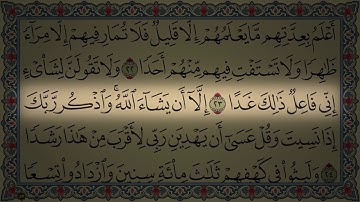 أَعْلَمُ بِعِدَّتِهِم مَّا يَعْلَمُهُمْ إِلَّا قَلِيلٌ فَلَا تُمَارِ فِيهِمْ إِلَّا مِرَآءً
ظَٰهِرًا وَلَا تَسْتَفْتِ فِيهِم مِّنْهُمْ أَحَدًا ٢٢ وَلَا تَقُولَنَّ لِشَا۟ىْءٍ
إِنِّى فَاعِلٌ ذَٰلِكَ غَدًا ٢٣ إِلَّآ أَن يَشَآءَ ٱللَّهُ وَٱذْكُر رَّبَّكَ
إِذَا نَسِيتَ وَقُلْ عَسَىٰٓ أَن يَهْدِيَنِ رَبِّى لِأَقْرَبَ مِنْ هَٰذَا رَشَدًا ٢٤
وَلَبِثُوا۟ فِى كَهْفِهِمْ ثَلَٰثَ مِا۟ئَةٍ سِنِينَ وَٱزْدَادُوا۟ تِسْعًا